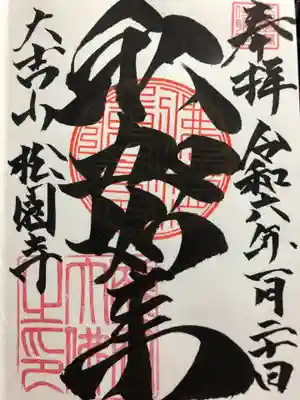 奉拝 令和六年一月二十日
釈迦如来
大吉山 松園寺